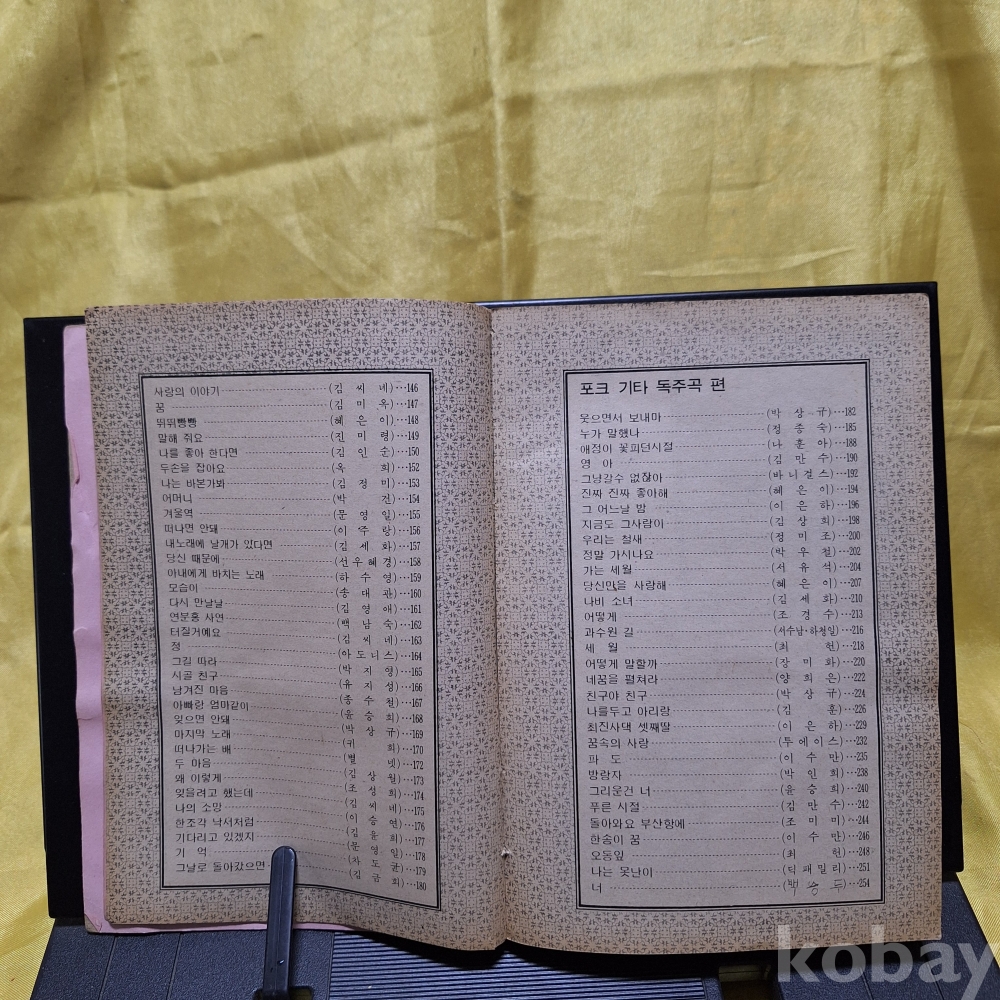 사랑의 이야기 (김 씨 네)…146
꿈 (김 미 옥)…147
뛰뛰빵빵 (혜 은 이)…148
말해 줘요 (진 미 령)…149
나를 좋아 한다면 (김 인 순)…150
두손을 잡아요 (옥 희)…152
나는 바본가봐 (김 정 미)…153
어머니 (박 진)…154
겨울역 (문 영 일)…155
떠나면 안돼 (이 주 랑)…156
내노래에 날개가 있다면 (김 세 화)…157
당신 때문에 (선우혜경)…158
아내에게 바치는 노래 (하 수 영)…159
모습이 (송 대 관)…160
다시 만날날 (김 영 애)…161
연분홍 사연 (백 남 숙)…162
터질거예요 (김 씨 네)…163
정 (아도니스)…164
그길 따라 (박 지 영)…165
시골 친구 (유 지 성)…166
남겨진 마음 …167
아빠랑 엄마같이 (윤 승 희)…168
잊으면 안돼 (박 상 규)…169
마지막 노래 …170
떠나가는 배 (별 넷)…172
두 마음 (김 상 월)…173
왜 이렇게 (조 성 희)…174
잊을려고 했는데 (김 씨 네)…175
나의 소망 (이 승 연)…176
한조각 낙서처럼 (김 윤 희)…177
기다리고 있겠지 (문 영 일)…178
기 억 (차 도 균)…179
그날로 돌아갔으면 (김 금 희)…180
포크 기타 독주곡 편
웃으면서 보내마 (박 상 규)…182
누가 말했나 (정 종 숙)…185
애정이 꽃피던시절 (나 훈 아)…188
영 아 (김 만 수)…190
그냥갈수 없잖아 (바니걸스)…192
진짜 진짜 좋아해 (혜 은 이)…194
그 어느날 밤 (이 은 하)…196
지금도 그사람이 (김 상 희)…198
우리는 철새 (정 미 조)…200
정말 가시나요 (박 우 철)…202
가는 세월 (서 유 석)…204
당신만을 사랑해 (혜 은 이)…207
나비 소녀 (김 세 화)…210
어떻게 (조 경 수)…213
과수원 길 (서수남·하청일)…216
세 월 (최 헌)…218
어떻게 말할까 (장 미 화)…220
네꿈을 펼쳐라 (양 희 은)…222
친구야 친구 (박 상 규)…224
나를두고 아리랑 (김 훈)…226
최진사댁 셋째딸 (이 은 하)…229
꿈속의 사랑 (투에이스)…232
파 도 (이 수 만)…235
방랑자 (박 인 희)…238
그리운건 너 (윤 승 희)…240
푸른 시절 (김 만 수)…242
돌아와요 부산항에 (조 미 미)…244
한송이 꿈 (이 수 만)…246
오동잎 (최 헌)…248
나는 못난이 (딕패밀리)…251
너 …254
kobay